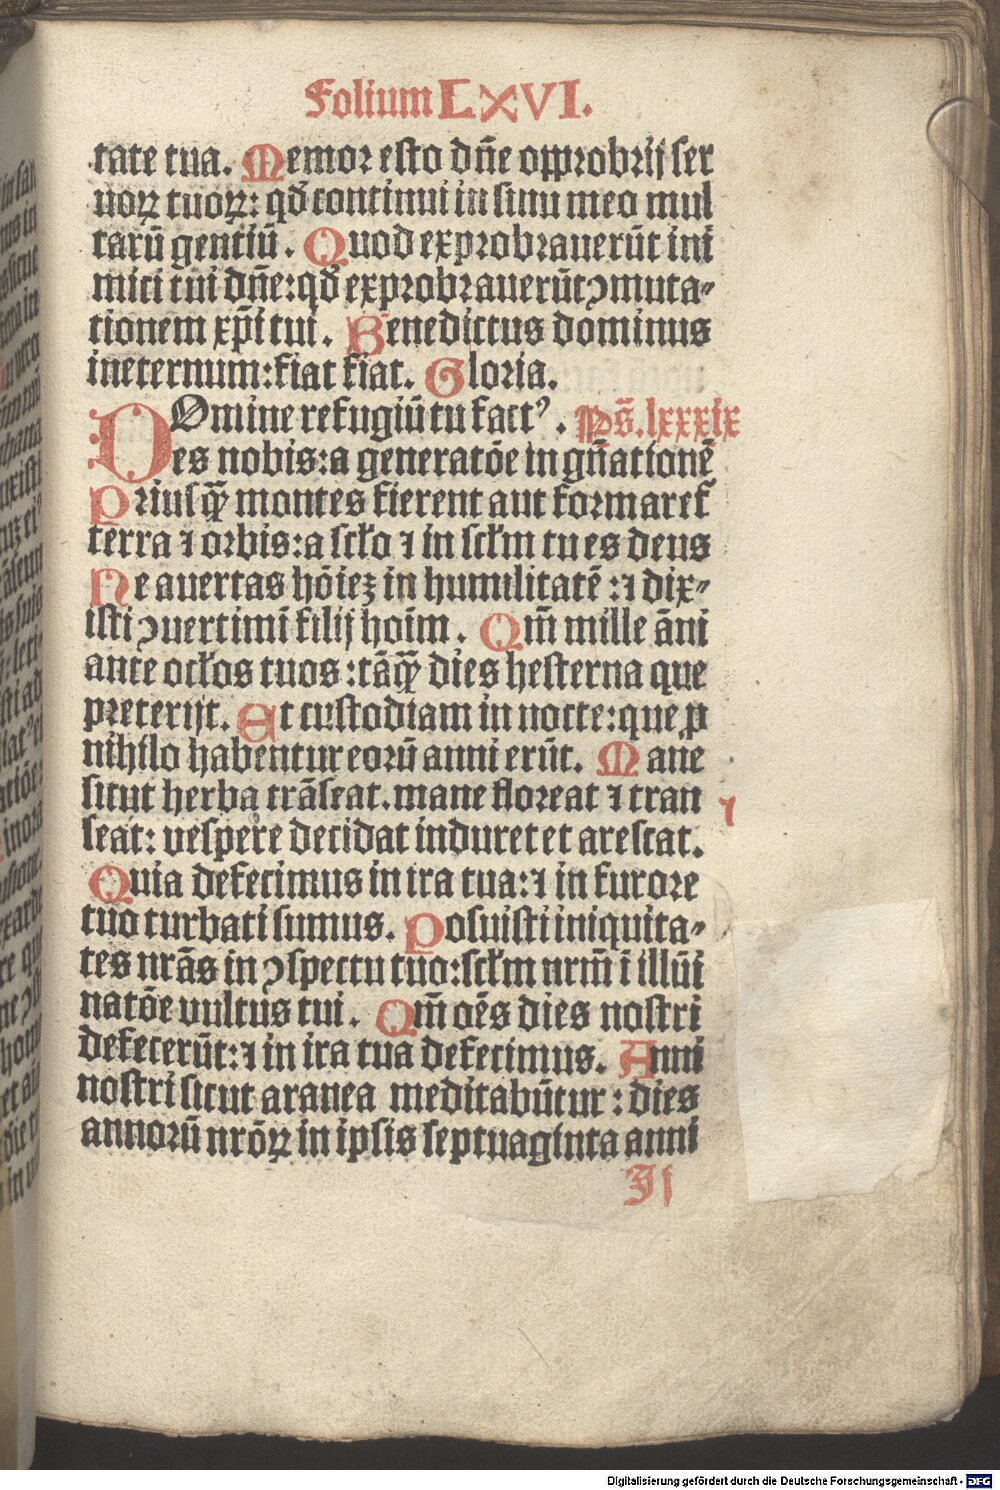 Folium LXVI.
tate tua. Memor esto dn̄e opprobrij ser
uoꝝ tuoꝝ: qđ continui in sinu meo mul
tarū gentiū. Quod exprobrauerūt ini
mici tui dn̄e: qđ exprobrauerūt ꝯmuta-
tionem xp̄i tui. Benedictus dominus
ineternum: fiat fiat. Gloria.
DOmine refugiū tu factꝰ. Ps̄. lxxxix
es nobis: a generatōe in gn̄ationē
Priusqꝫ̄ montes fierent aut formaret̉
terra ⁊ orbis: a scło ⁊ in scłm tu es deus
Ne auertas hōiez in humilitatē: ⁊ dix-
isti ꝯuertimī filij hoīm. Qm̄ mille āni
ante ocłos tuos: tāqꝫ̄ dies hesterna que
preterijt. Et custodiam in nocte: que ꝓ
nihilo habentur eorū anni erūt. Mane
sicut herba trāseat. mane floreat ⁊ tran
seat: vespere decidat induret et arescat.
Quia defecimus in ira tua: ⁊ in furore
tuo turbati sumus. Posuisti iniquita-
tes nrās in ꝯspectu tuo: scłm nrm̄ ī illūi
natōe vultus tui. Qm̄ oēs dies nostri
defecerūt: ⁊ in ira tua defecimus. Anni
nostri sicut aranea meditabūtur: dies
annorū nrōꝝ in ipsis septuaginta anni
Digitalisierung gefördert durch die Deutsche Forschungsgemeinschaft - DFG